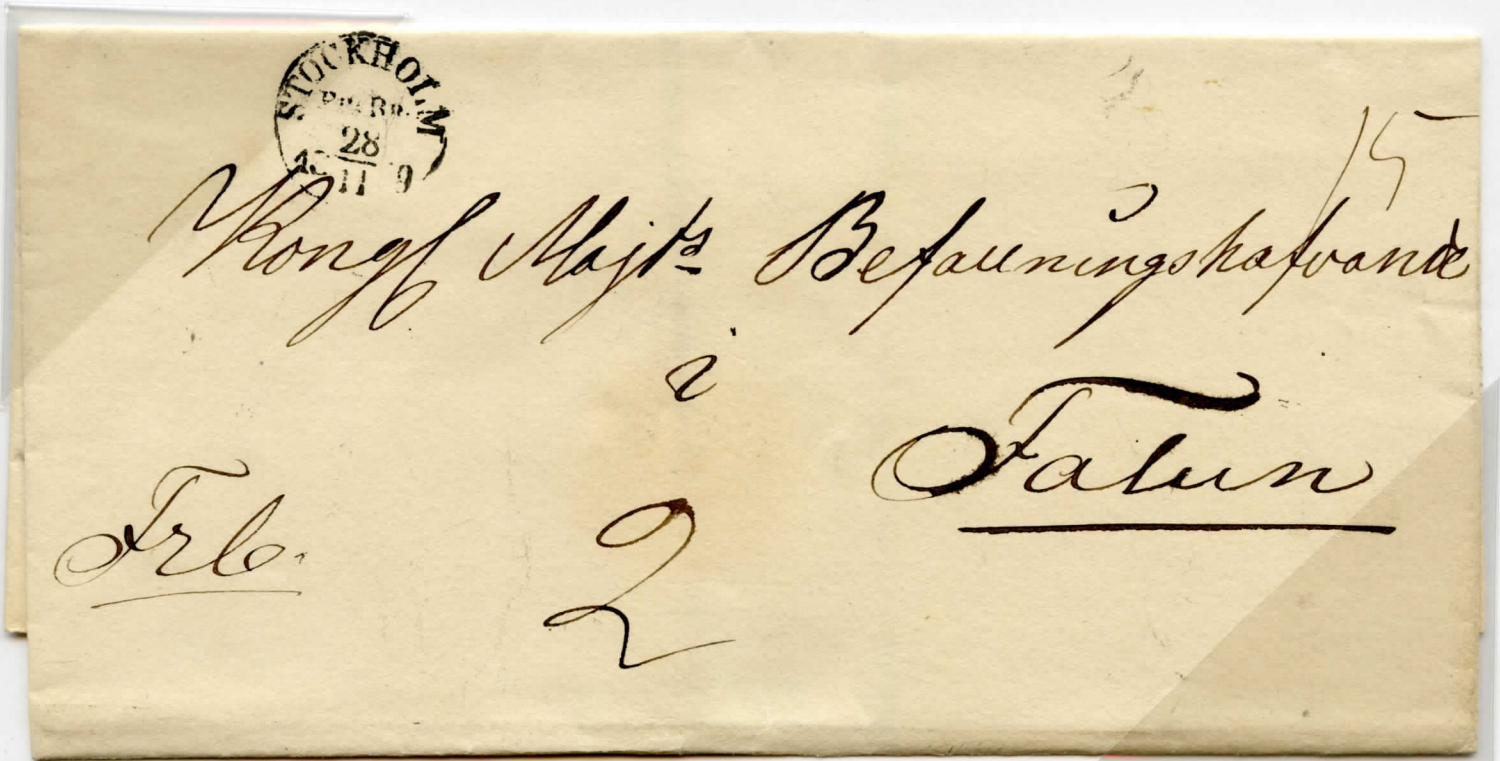 STOCKHOLM
28
11
15
Kongl Majts Befallningshafvande
i
Falun
Frb.
2